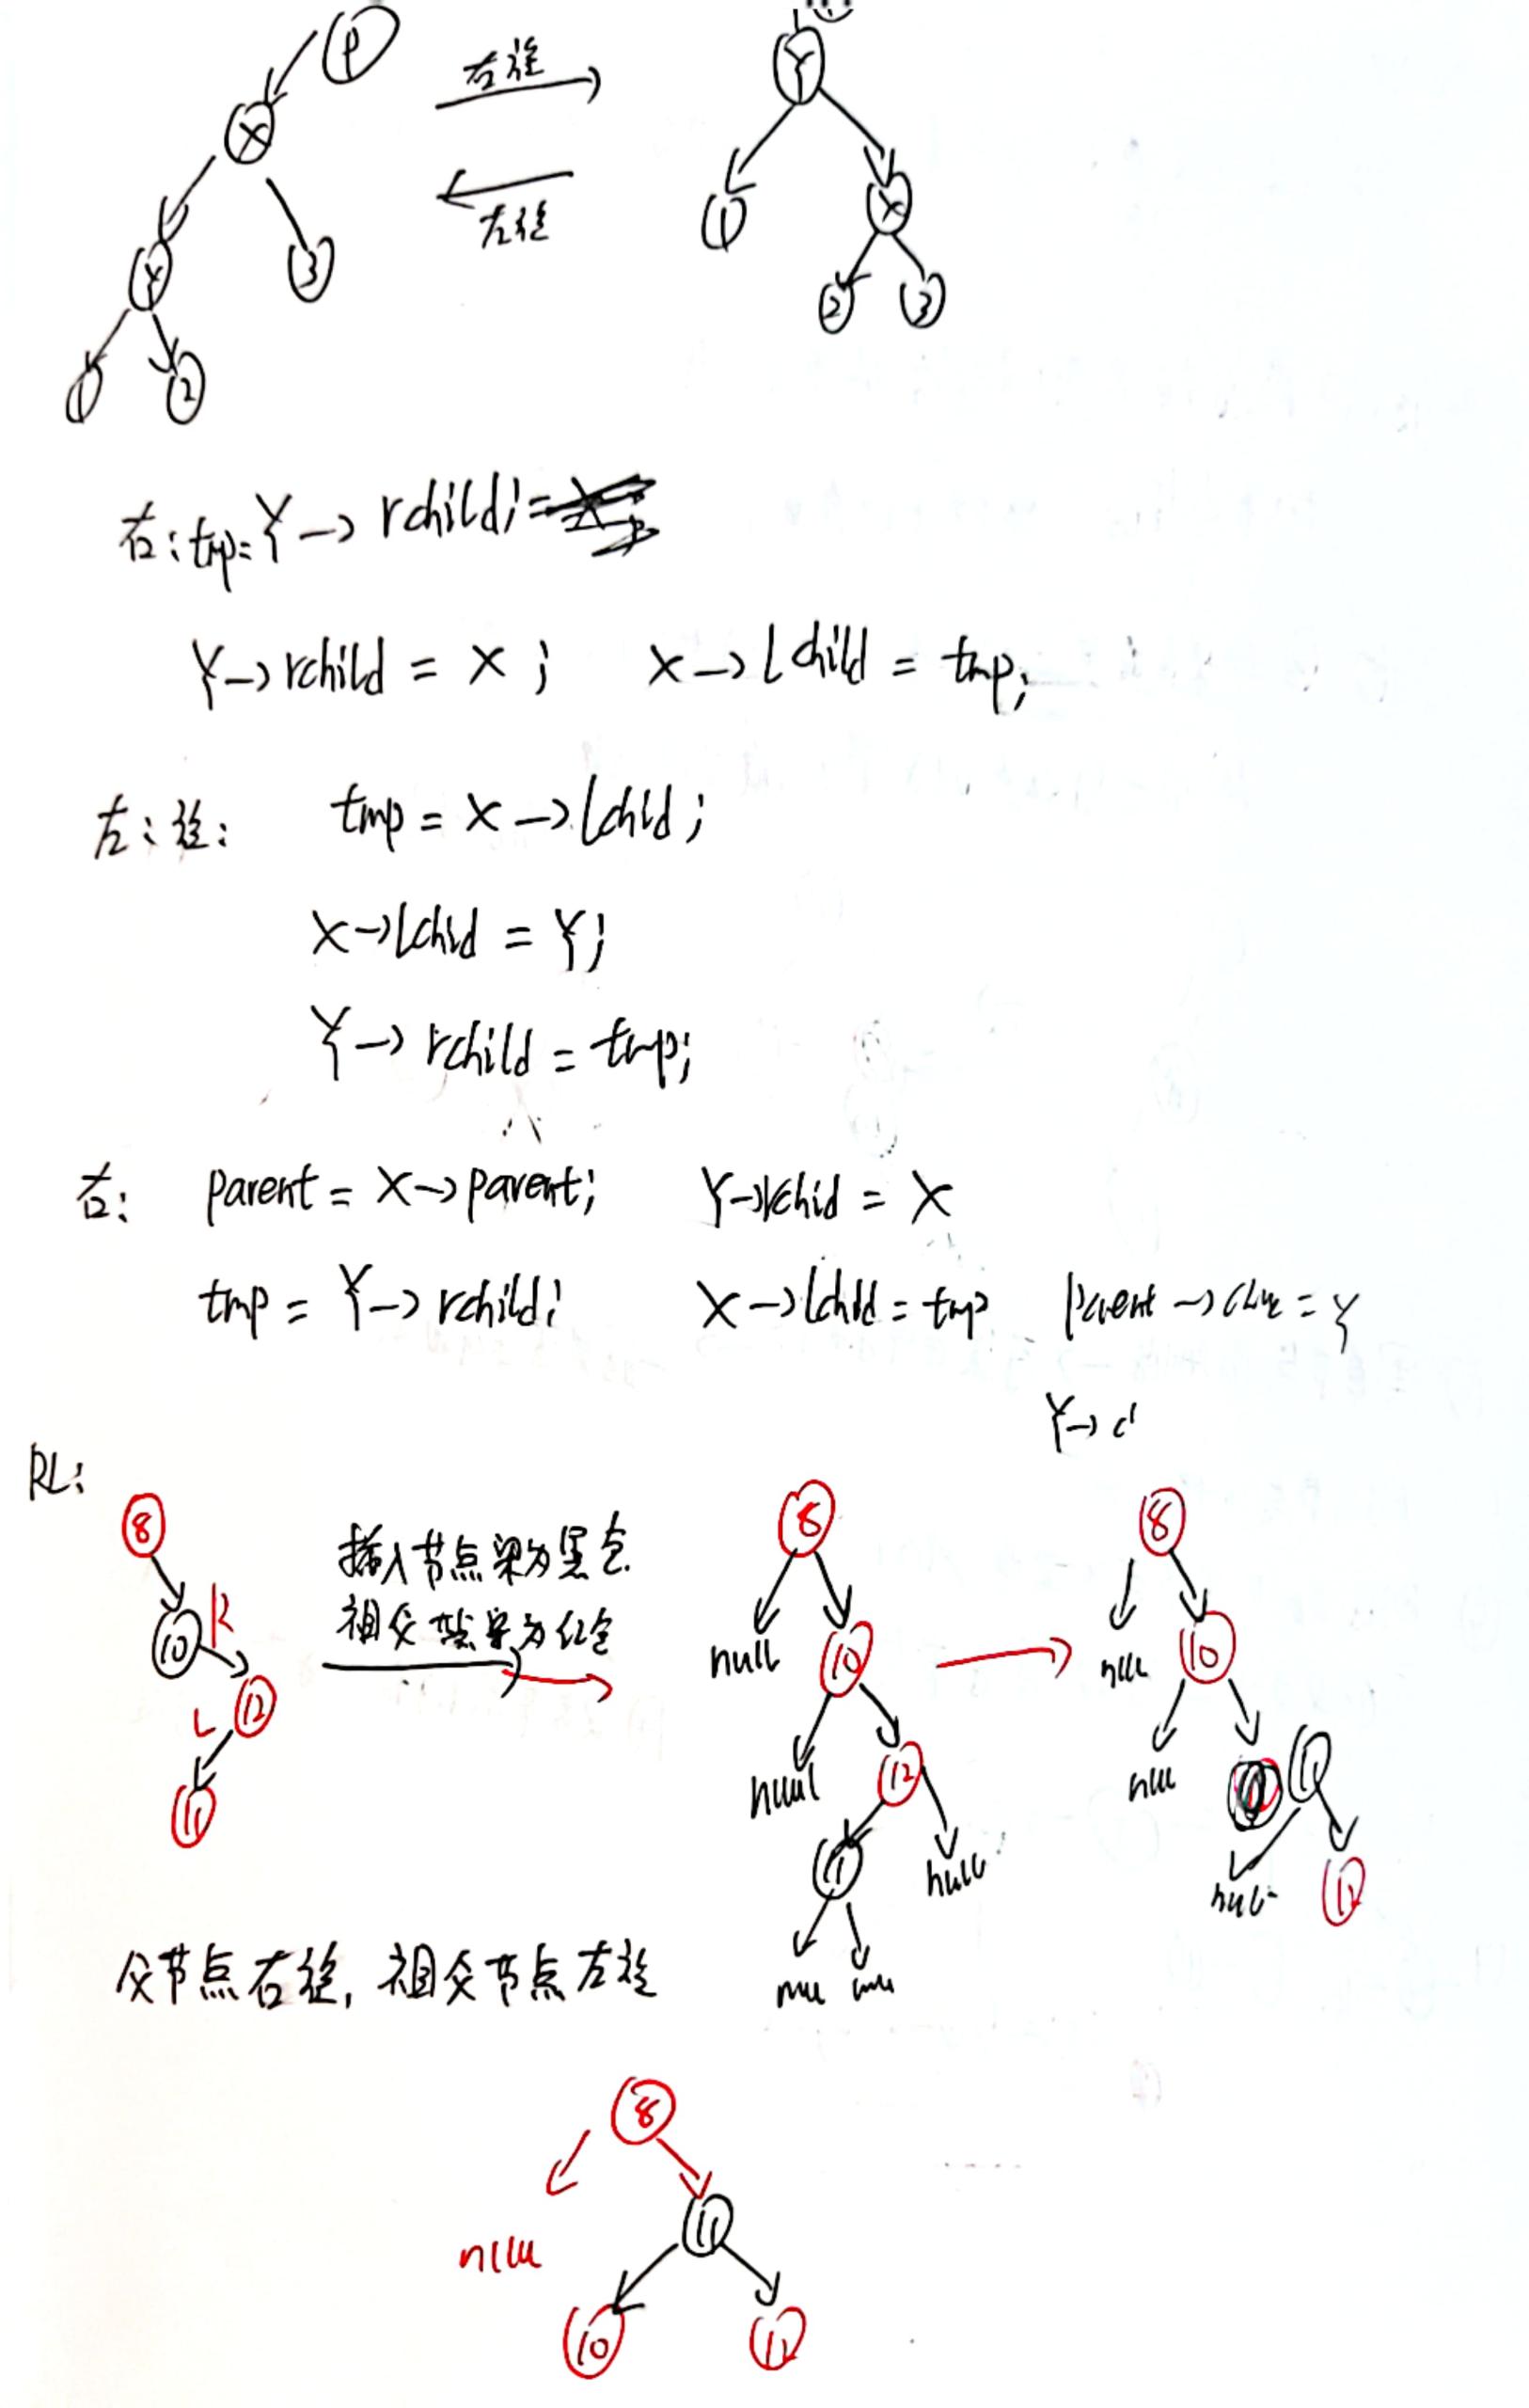 P
右旋
X
Y
3
1
2
Y
左旋
1
X
2
3
右: tmp=Y→rchild;
Y→rchild = X; X→lchild = tmp;
左: 旋: tmp = X→lchld;
X→lchld = Y;
Y→rchild = tmp;
右: parent = X→parent; Y→rchid = X
tmp = Y→rchild; X→lchld = tmp
Y→c
RL:
8
插入节点染为黑色
祖父节点染为红色
10
R
12
L
11
8
null
10
null
12
11
null
8
10
父节点右旋, 祖父节点左旋
8
11
10